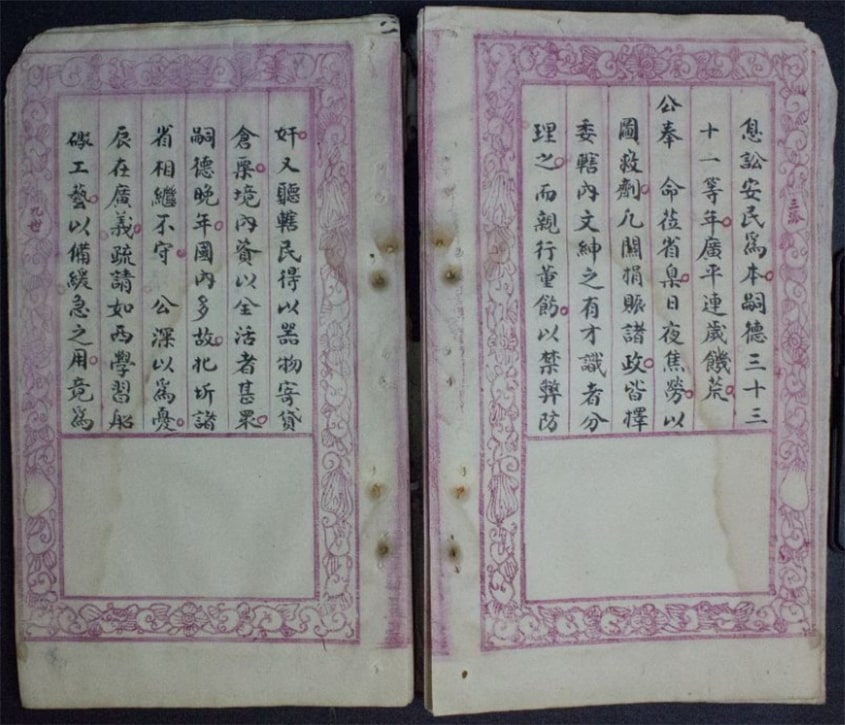 三派
息訟安民爲本嗣德三十三
十一等年廣平連歲饑荒
公奉 命莅省臬日夜焦勞以
圖救劑凡關捐賑諸政皆擇
委轄內文紳之有才識者分
理之而親行董飭以禁弊防
二
奸又聽轄民得以器物寄貸
倉粟境內資以全活者甚眾
嗣德晚年國內多故北圻諸
省相繼不守 公深以爲憂
辰在廣義疏請如西學習船
礮工藝以備緩急之用竟爲
九世